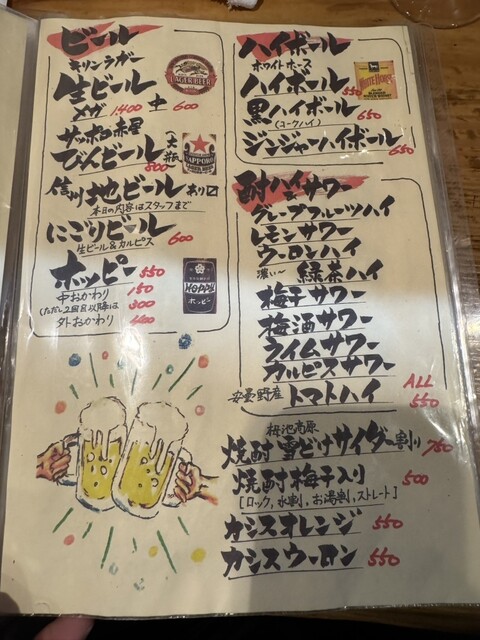 ビール
キリンラガー
生ビール
メガ 1400 中 600
LAGER BEER
サッポロ赤星
びんビール (大瓶) 800
SAPPORO
信州地ビール あり〼
本日の内容はスタッフまで
にごりビール
生ビール&カルピス 600
ホッピー 550
中おかわり 150
(ただし2回目以降は 300
外おかわり 400
HOPPY
ホッピー
ハイボール
ホワイトホース
ハイボール 550
WHITE HORSE
黒ハイボール
(コークハイ) 650
ジンジャーハイボール 650
酎ハイ・サワー
グレープフルーツハイ
レモンサワー
ウーロンハイ
濃い〜 緑茶ハイ
梅干サワー
梅酒サワー
ライムサワー
カルピスサワー
安曇野産 トマトハイ
ALL 550
栂池高原
焼酎雪どけサイダー割り 750
焼酎梅干入り 500
[ロック, 水割, お湯割, ストレート]
カシスオレンジ 550
カシスウーロン 550